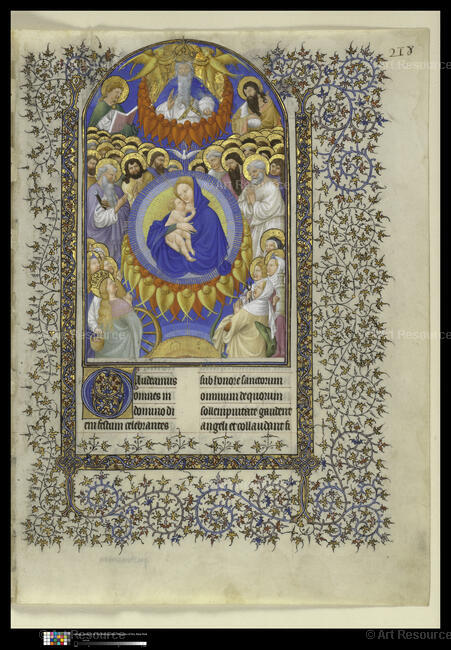 218
Gaudeamus
omnes in
domino di
em festum celebrantes
sub honore sanctorum
omnium de quorum
sollempnitate gaudent
angeli et collaudant fi
© Art Resource
© Art Resource
© Art Resource
© Art Resource